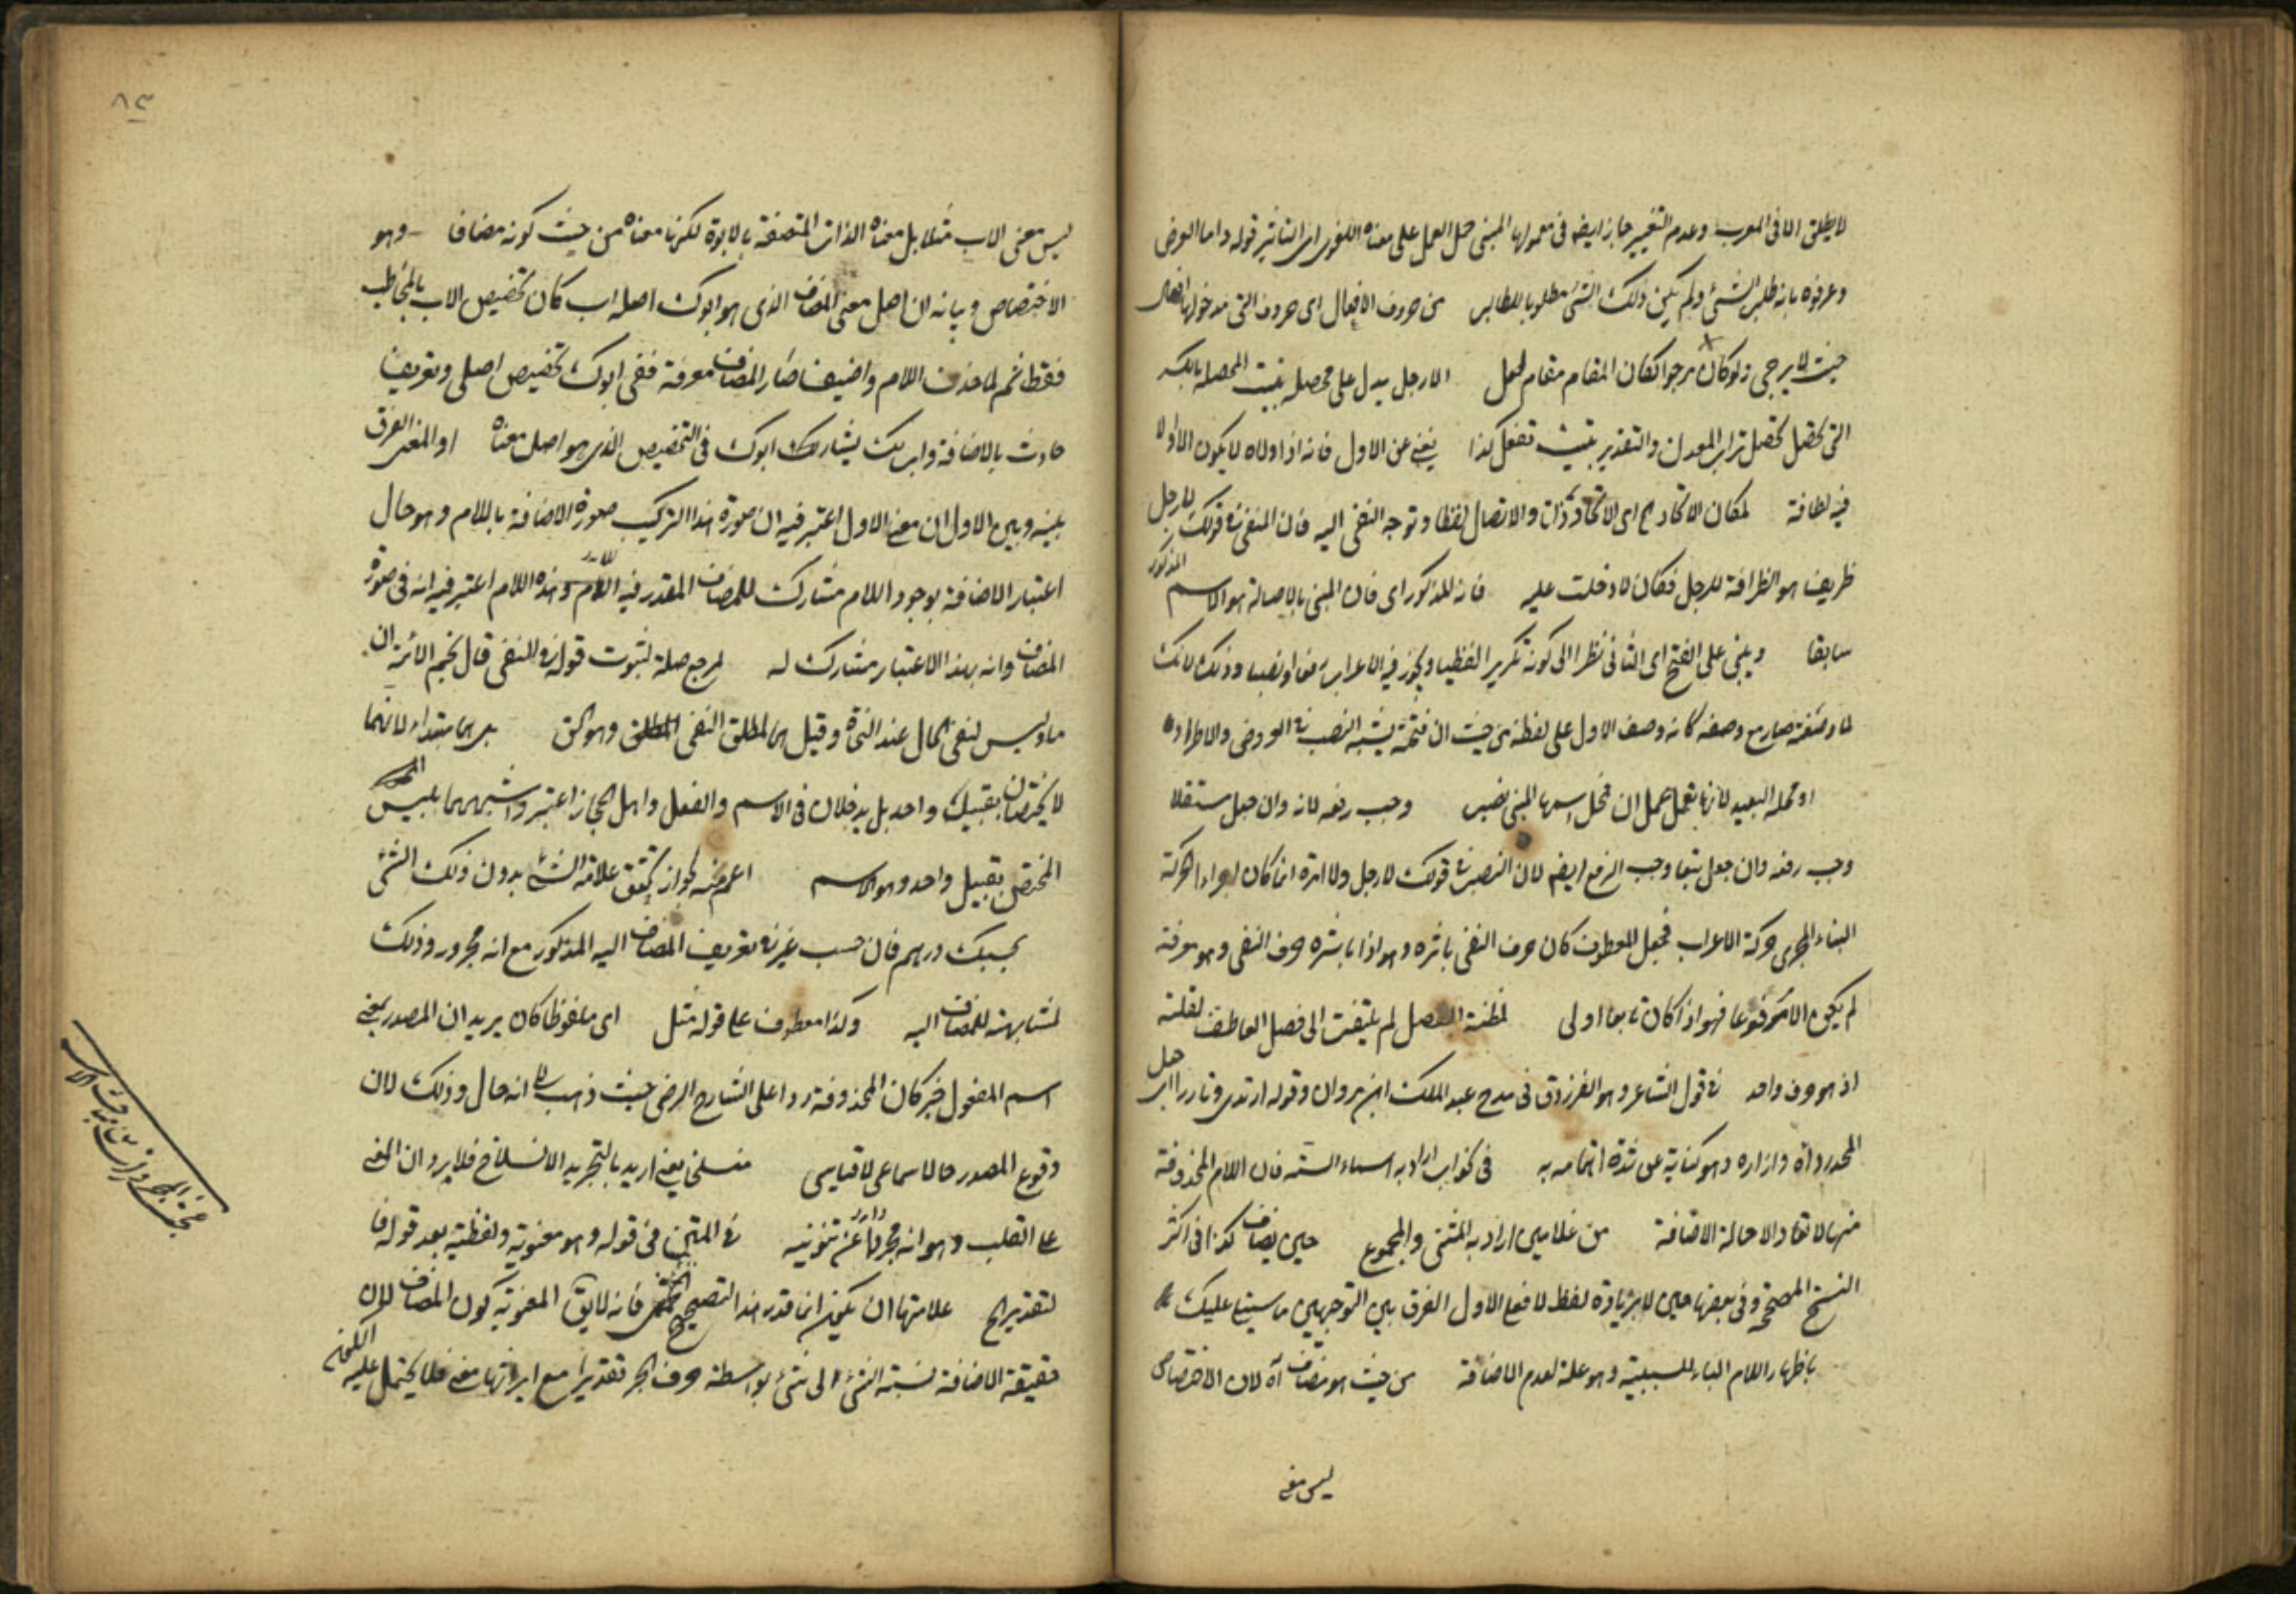 لا يطلق الا في المعرب وعدم التغيير جاز ايضا في معمولها المبني حمل العمل على معناه اللغوي اي التأثير قوله واما العرض
وعرفوه بانه طلب الشيء ولم يكن ذلك الشيء مطلوبا للطالب من حروف الافعال اي حروف التي مدخولها افعال
حيث لا يرجى ولو كان مرجوا لكان المقام مقام لعل الا رجل يدل على محصلة تبيت المحصلة بالكسر
التي تحصل تراب المعدن والتقدير تبيت تفعل كذا يغني عن الاول فانه اذا ولاه لا يكون الا اولا
فيه لطافة لمكان الاتحاد اي الاتحاد ذاتا والاتصال لفظا وتوجه النفي اليه فان المنفي في قولك لا رجل
ظريف هو الظرافة للرجل فكان لا دخلت عليه فانه المذكور اي فان المبني بالاصالة هو الاسم المذكور
سابقا ويبنى على الفتح اي الثاني نظرا الى كونه تكريرا لفظيا ويجوز فيه الاعراب رفعا ونصبا وذلك لانك
لما وصفته صار مع وصفه كانه وصف الاول على لفظه من حيث ان فتحته يشبه النصب في العروض والاطراد
او محله البعيد لانها تعمل عمل ان فمحل اسمها المبني نصب وجب رفعه لانه وان جعل مستقلا
وجب رفعه وان جعل تبعا وجب الرفع ايضا لان النصب في قولك لا رجل ولا امرأة انما كان لاجراء الحركة
البناء المجرى حركة الاعراب فجعل المعطوف كان حرف النفي باشره وهو اذا باشره حرف النفي وهو معرفة
لم يكن الا مرفوعا فهو اذا كان تابعا اولى لمظنة الفصل لم يلتفت الى فصل العاطف لقلته
اذ هو حرف واحد في قول الشاعر وهو الفرزدق في مدح عبد الملك ابن مروان وقوله ارتدى وتازرا اي جعل
المجد رداه وازاره وهو كناية عن شدة اتسامه به في نحو اب اراد به اسماء الستة فان اللام المحذوفة
منها لا تعاد الا حالة الاضافة من غلامين اراد به المثنى والمجموع حين يضاف كذا في اكثر
النسخ المصححة وفي بعضها حين لا بزيادة لفظ لا فعلى الاول الفرق بين التوجيهين ما سيتلى عليك
باظهار اللام الباء للسببية وهو علة لعدم الاضافة من حيث هو مضاف آه لان الاختصاص
ليس معنى
٨٣
ليس معنى الاب مثلا بل معناه الذات المتصفة بالابوة لكنها معناه من حيث كونه مضافا وهو
الاختصاص وبيانه ان اصل معنى المضاف الذي هو ابوك اصله اب كان تخصيص الاب بالمخاطب
فقط ثم لما حذف اللام واضيف صار المضاف معرفة ففي ابوك تخصيص اصلي وتعريف
حادث بالاضافة واب لك يشارك ابوك في التخصيص الذي هو اصل معناه او المغني الفرق
بينه وبين الاول ان معنى الاول اعتبر فيه ان صورة هذا التركيب صورة الاضافة باللام وهو حال
اعتبار الاضافة بوجود اللام مشارك للمضاف المقدر فيه اللام وهذه اللام اعتبر فيه انه في صورة
المضاف وانه بهذا الاعتبار مشارك له لمرجح صلة لثبوت قوله في النفي قال نجم الائمة ان
ما وليس لنفي الحال عند النحاة وقيل هما لمطلق النفي المطلق وهو الحق بل هما مبتداء لانهما
لا يختصان بقبيل واحد بل يدخلان في الاسم والفعل واهل الحجاز اعتبروا شبههما بليس
المختص بقبيل واحد وهو الاسم اعم منه لجواز تحقق علامة الشيء بدون ذلك الشيء
بحسبك درهم فان حسب غير في تعريف المضاف اليه المذكور مع انه مجرور وذلك
لمشابهته للمضاف اليه وكذا معطوف على قوله مثل اي ملفوظا كان يريد ان المصدر بمعنى
اسم المفعول خبر كان المحذوفة ردا على الشارح الرضي حيث ذهب الى انه حال وذلك لان
وقوع المصدر حالا سماعي لا قياسي منسلخ يعني اريد بالتجريد الانسلاخ فلا يرد ان المعنى
على القلب وهو انه مجردا عن تنوينه في المتن في قوله وهو معنوية ولفظية بعد قوله فا
لتقدير الخ علامتها ان يكون انما قدر هذا لتصحيح الحمل فانه لا يقال المعنوية كون المضاف لان
حقيقة الاضافة نسبة الشيء الى شيء بواسطة حرف الجر تقديرا مع ابرازها معنى فلا يحتمل عليه